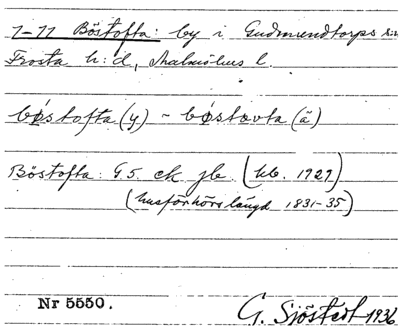 1-11 Böstofta: by i Gudmundtorps sn
Frosta h:d, Malmöhus l.
bǿstofta (y) ~ bǿstavta (ä)
Böstofta: G5. ek jb. (kb. 1929)
(husförhörslängd 1831-35)
Nr 5550. G. Sjöstedt 1936